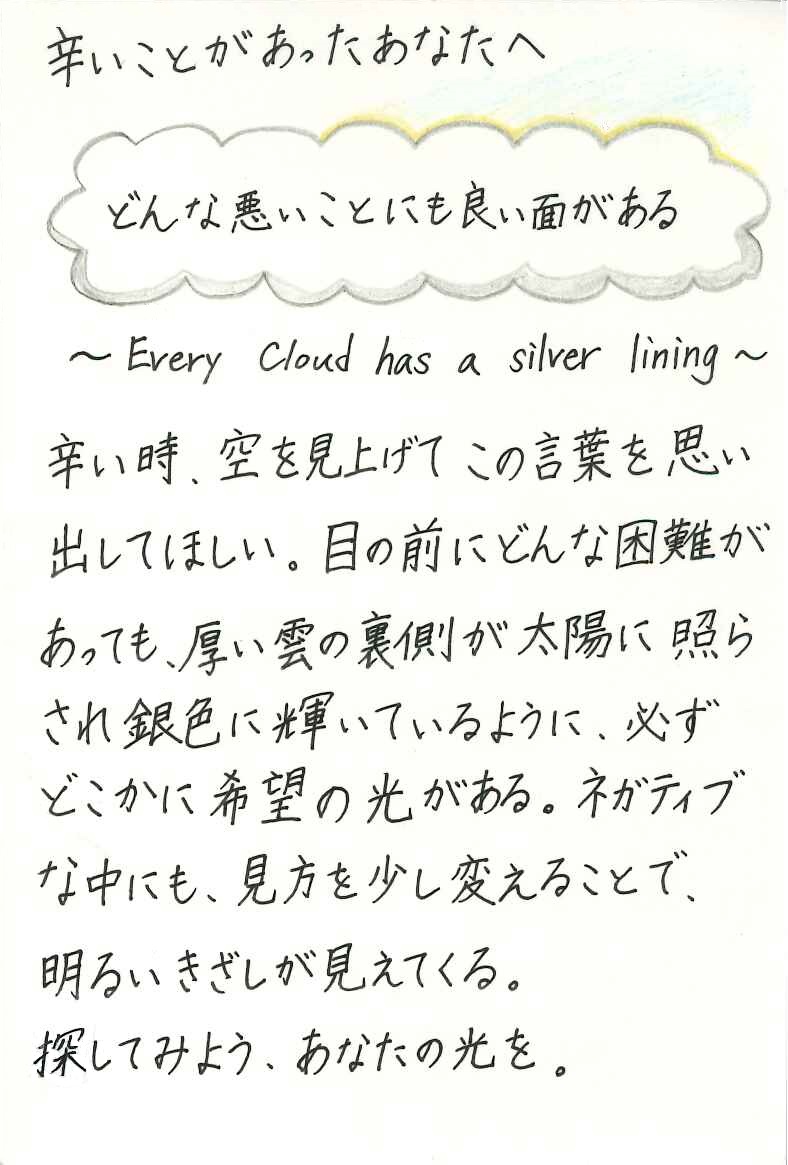 辛いことがあったあなたへ
どんな悪いことにも良い面がある
～Every Cloud has a silver lining～
辛い時、空を見上げてこの言葉を思い
出してほしい。目の前にどんな困難が
あっても、厚い雲の裏側が太陽に照ら
され銀色に輝いているように、必ず
どこかに希望の光がある。ネガティブ
な中にも、見方を少し変えることで、
明るいきざしが見えてくる。
探してみよう、あなたの光を。